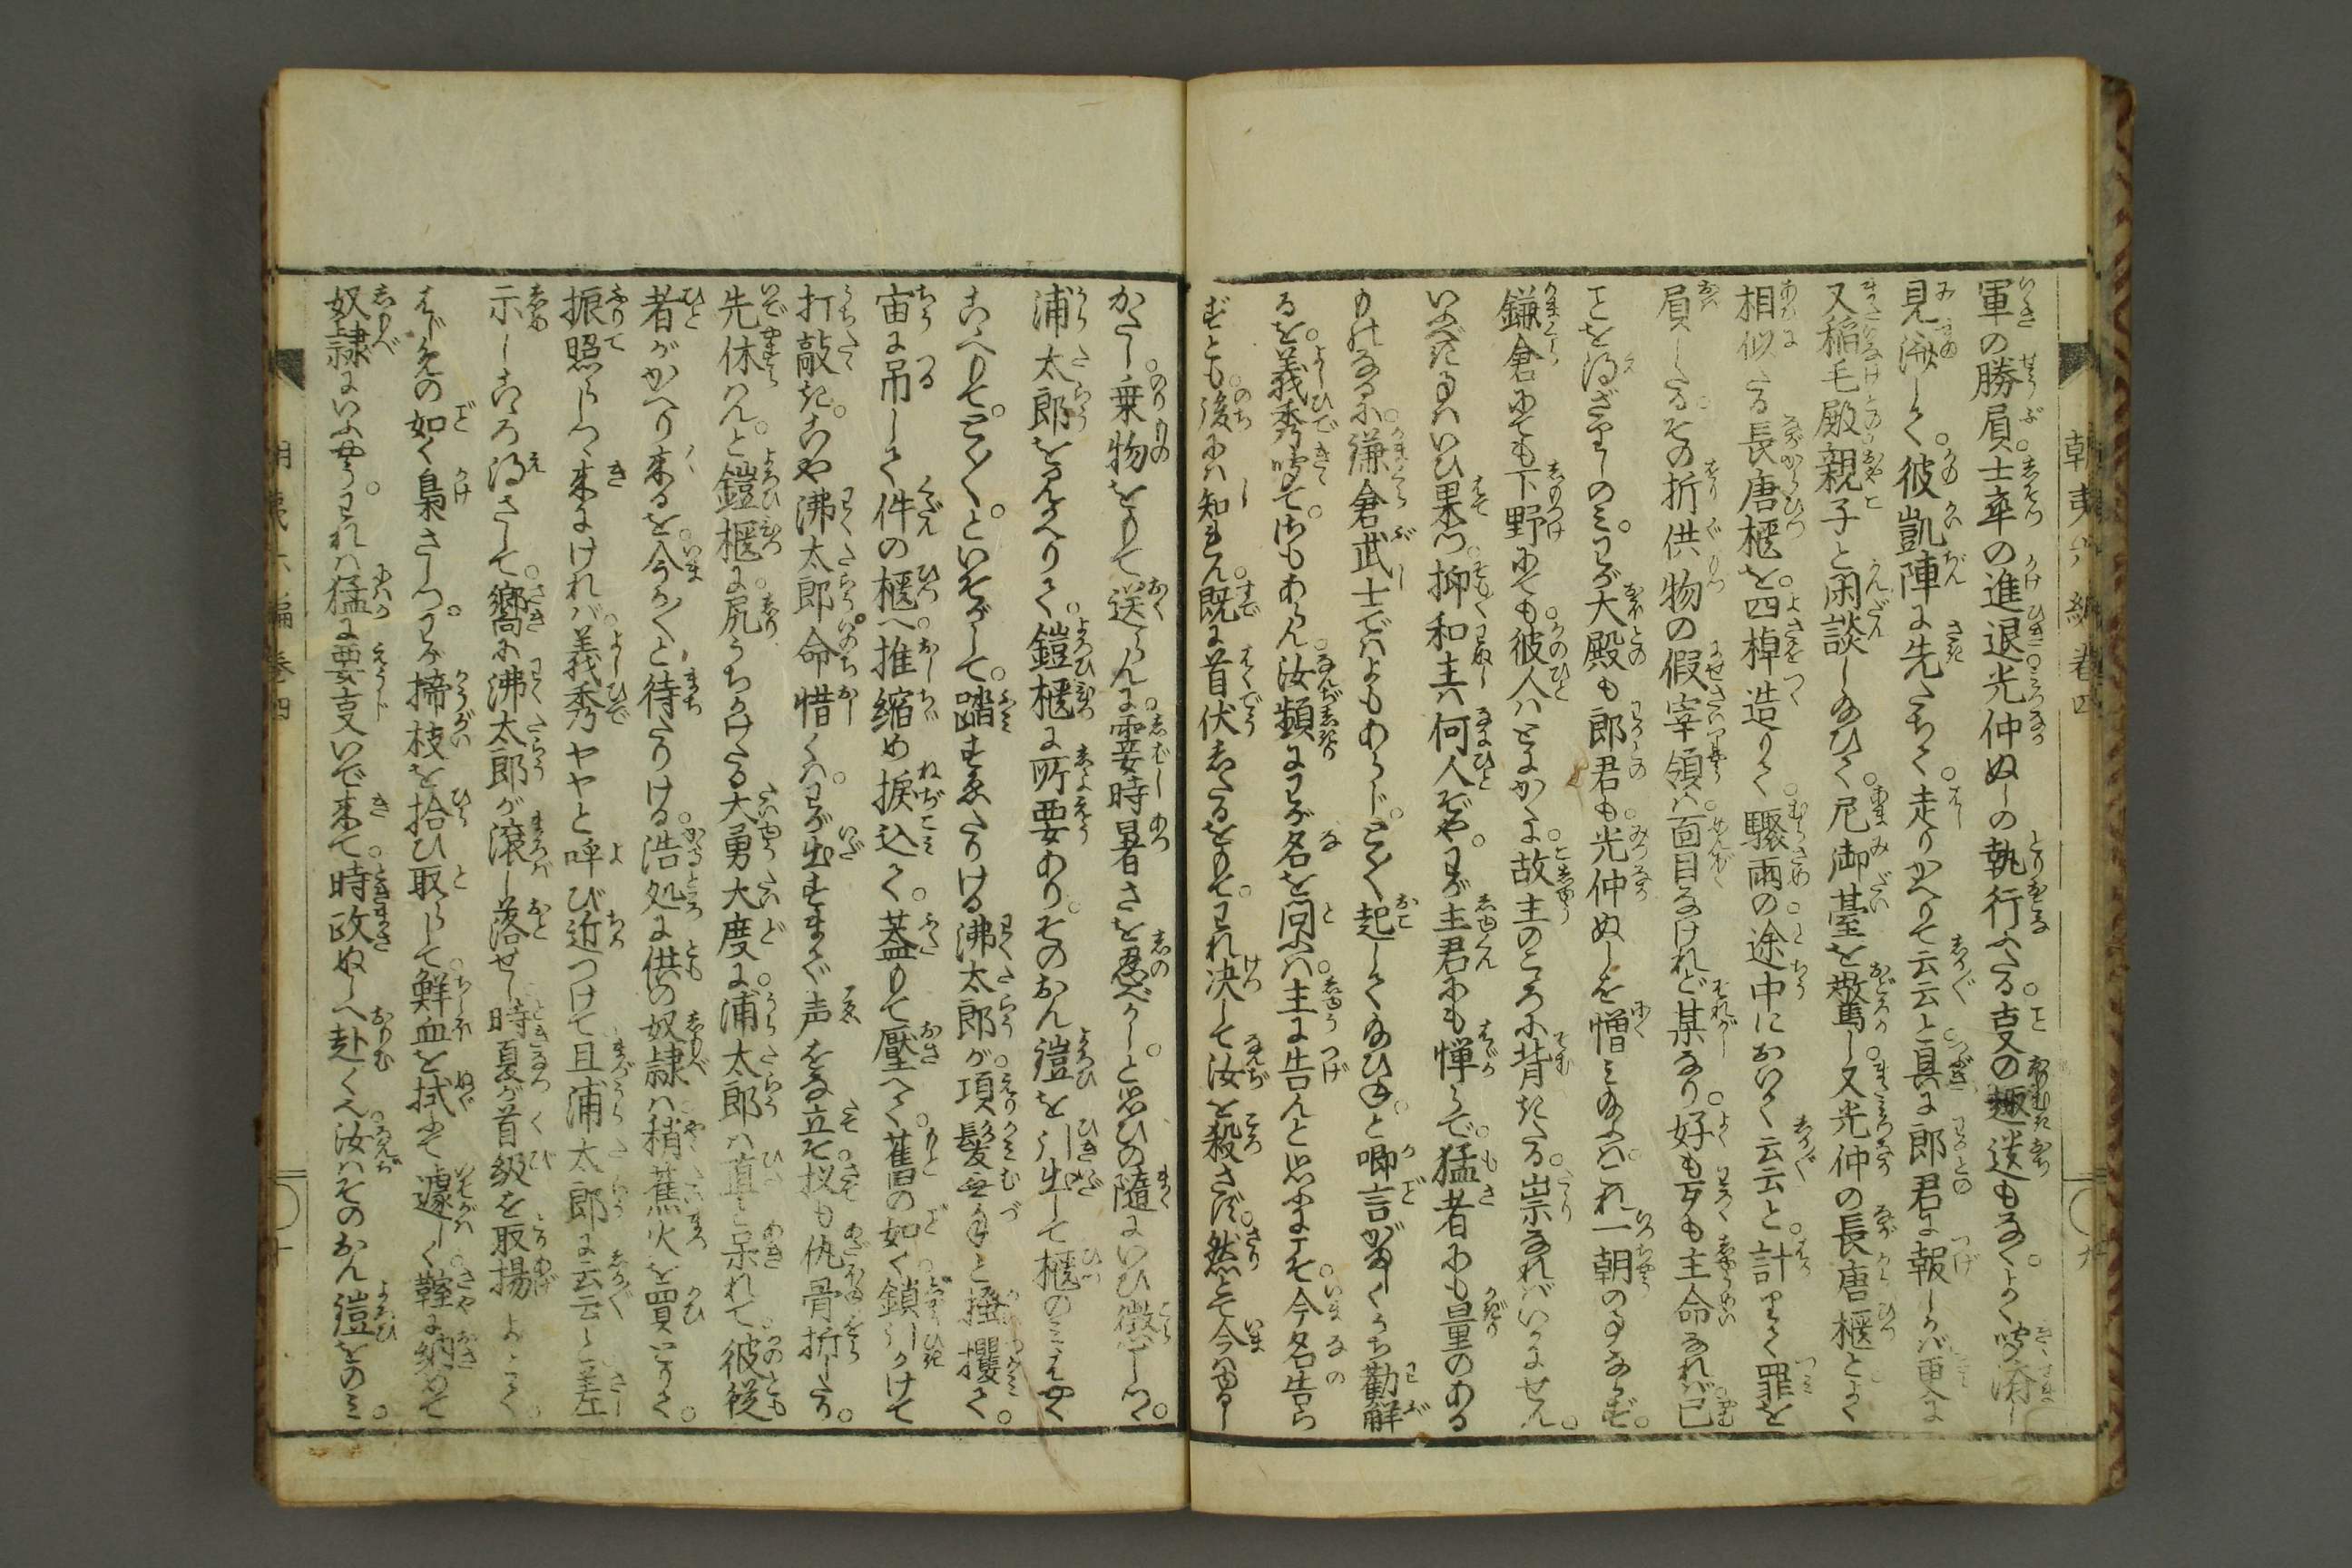 朝夷六編巻四
軍の勝負。士卒の進退。光仲ぬしの執行ふたる。事の趣送もなく。よく聞済し
見済して。彼凱陣に先たちて。走りかへりて云云と。具に郎君に報しかば。更に
又稲毛殿親子と閑談し給ひて。尼御臺を驚し。又光仲の長唐櫃とよく
相似たる長唐櫃を。四棹造りて。驟雨の。途中において云云と。計りて罪を
屓したる。その折供物の假宰領は。面目なけれど某なり。好も歹も主命なれば。已
ことを得ざりしのみ。わが大殿も郎君も。光仲ぬしを憎み給ふは。これ一朝の事ならず。
鎌倉にても下野にても。彼人はとにかくに。故主のこゝろに背きたる。祟なればいかにせん。
いふべき事はいひ果つ。抑和主は何人ぞや。わが主君にも憚らで。猛者にも量のある
ものなるに。鎌倉武士ではよもあらじ。とく〳〵起して給ひね。と喞言がましくうち勸解
るを。義秀聞て。さもあらん。汝頻にわが名を問ふは。主に告んと思ふにこそ。今名告ら
ずとも。後には知れん。既に首伏したるをもて。われ決して汝を殺さず。然とて今はゆるし
かたし。乗物をもて送らんに。霎時暑さを忍べかし。と思ひの隨にいひ懲しつゝ。
浦太郎を見かへりて。鎧櫃に所要あり。そのおん鎧を引出して櫃のみはやく
こゝへもて。とく〳〵。といそがして。踏すゑたりける沸太郎が。項髪無手と掻攫て。
宙に吊して件の櫃へ。推縮め捩込て。葢もて壓へて。舊の如く。鎖しかけて
打敲き。こや沸太郎命惜くは。わが出すまで声をな立そ。扨も仇骨折したり。
先休はん。と鎧櫃に。尻うちかけたる大勇大度に。浦太郎は直と呆れて。彼従
者がかへり来るを。今か〳〵と待たりける。浩処に供の奴隷は。稍蕉火を買とりて。
振照らしつゝ来にければ。義秀ヤヤと呼び近つけて。且浦太郎に云云と差
示しこゝろ得さして。嚮に沸太郎が滾し落せし時夏が首級を取揚
はじめの如く梟さしつ。わが擶枝を拾ひ取らして。鮮血を拭ふて遽しく。鞘に納めて
奴隷にいふやう。われは猛に要事いで来て。時政ぬしへ赴くに。汝はそのおん鎧をのみ。
朝夷六編巻四